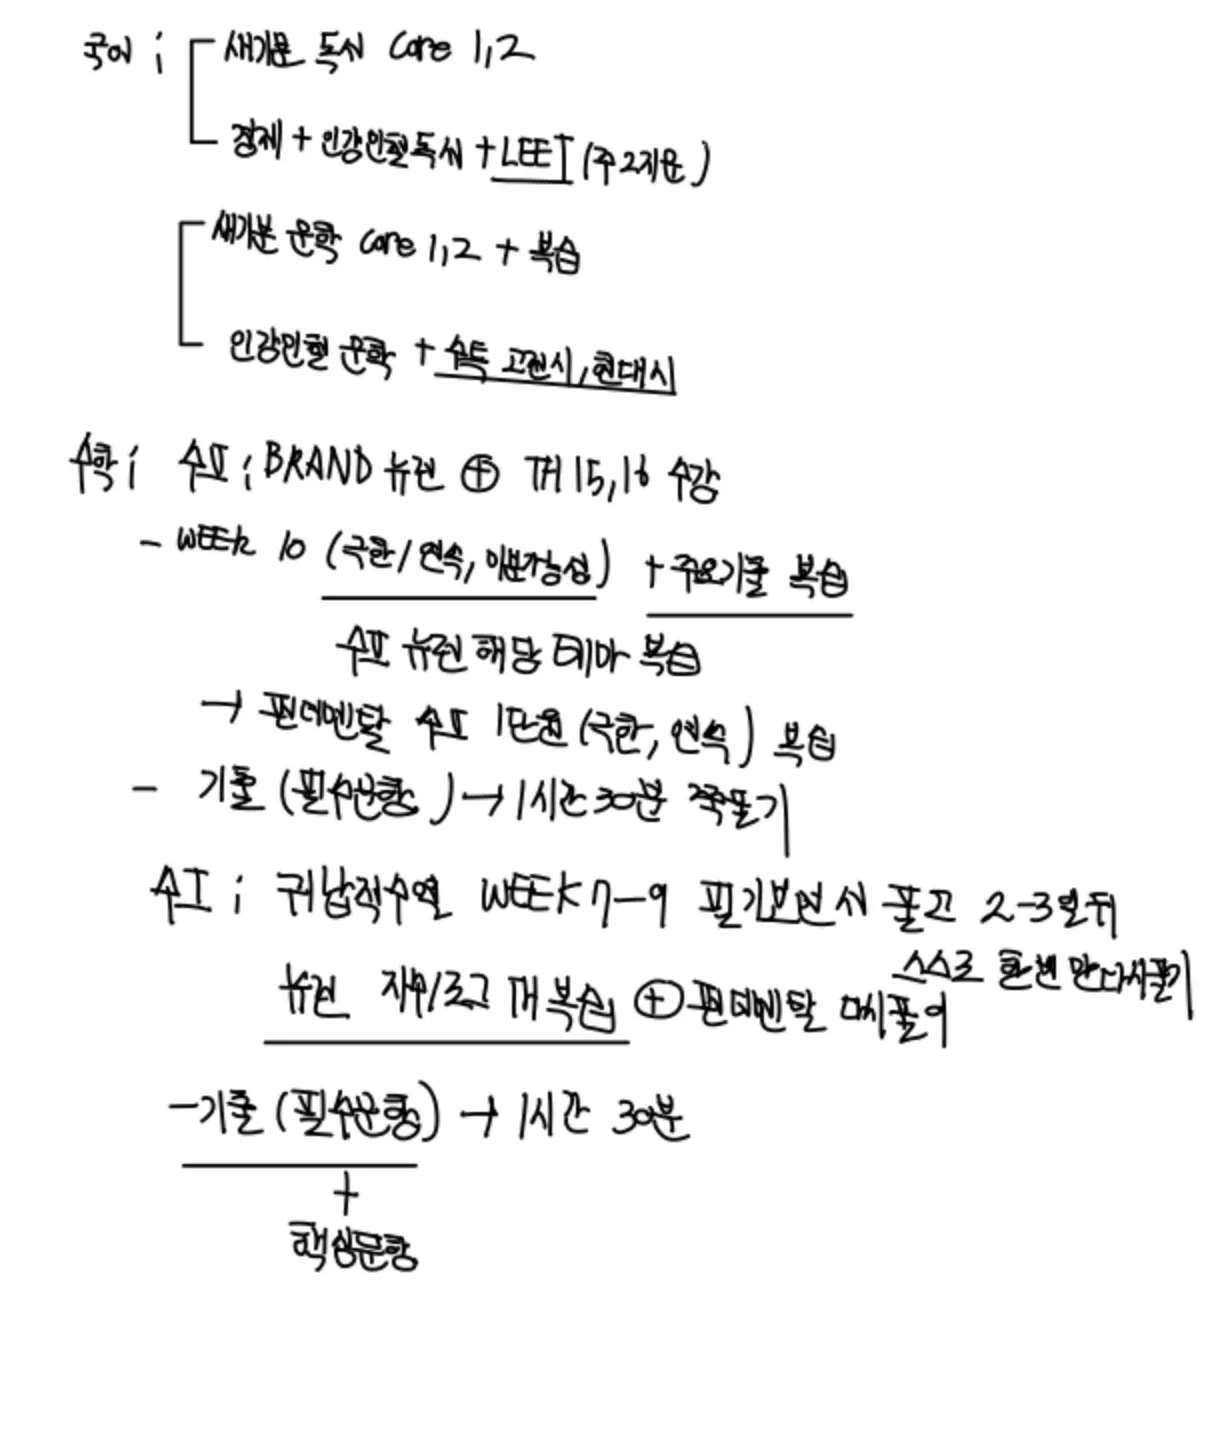 국어 ; 새기분 독서 Core 1,2
경제 + 인강민철 독서 + LEET (주 2지문)
새기분 문학 Core 1,2 + 복습
인강민철 문학 + 수특 고전시, 현대시
수학 ; 수Ⅱ ; BRAND 뉴런 ⊕ TH 15, 16 수강
- WEEK 10 (극한/연속, 미분가능성) + 주요기출 복습
수Ⅱ 뉴런 해당 테마 복습
→ 펀더멘탈 수Ⅱ 1단원 (극한, 연속) 복습
- 기출 (필수문항) → 1시간 30분 쭉풀기
수Ⅰ ; 귀납적수열 WEEK 7-9 필기보면서 풀고 2-3일뒤
스스로 한번 만 다시풀기
뉴런 지수/로그 TH 복습 ⊕ 펀더멘탈 다시풀이
- 기출 (필수문항) → 1시간 30분
+
핵심문항